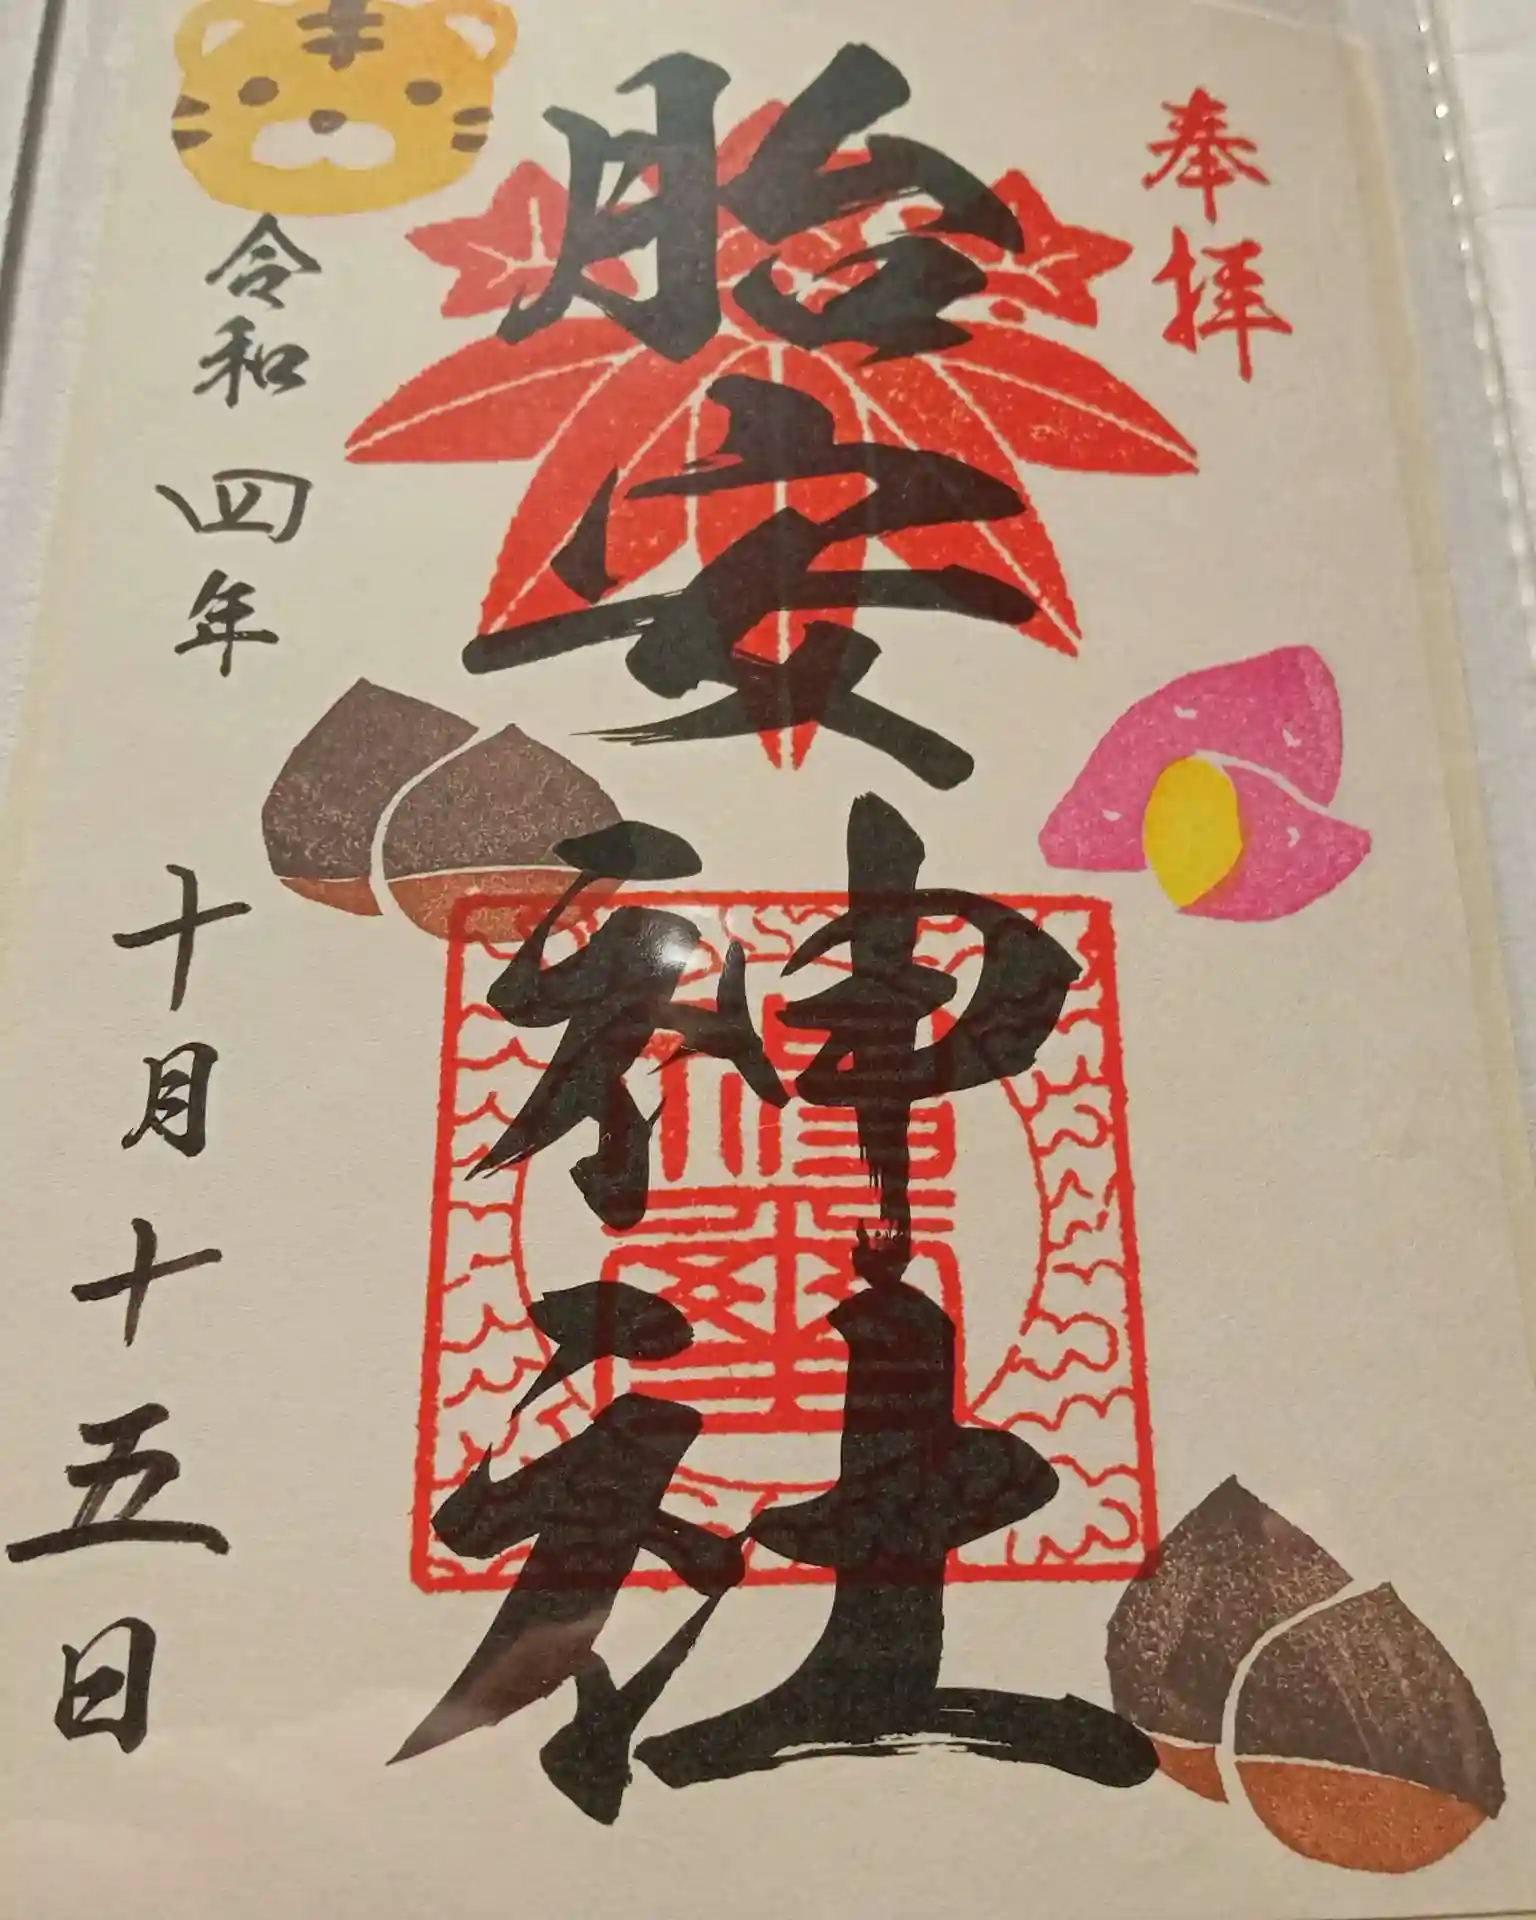 奉拝
胎安神社
令和四年十月十五日